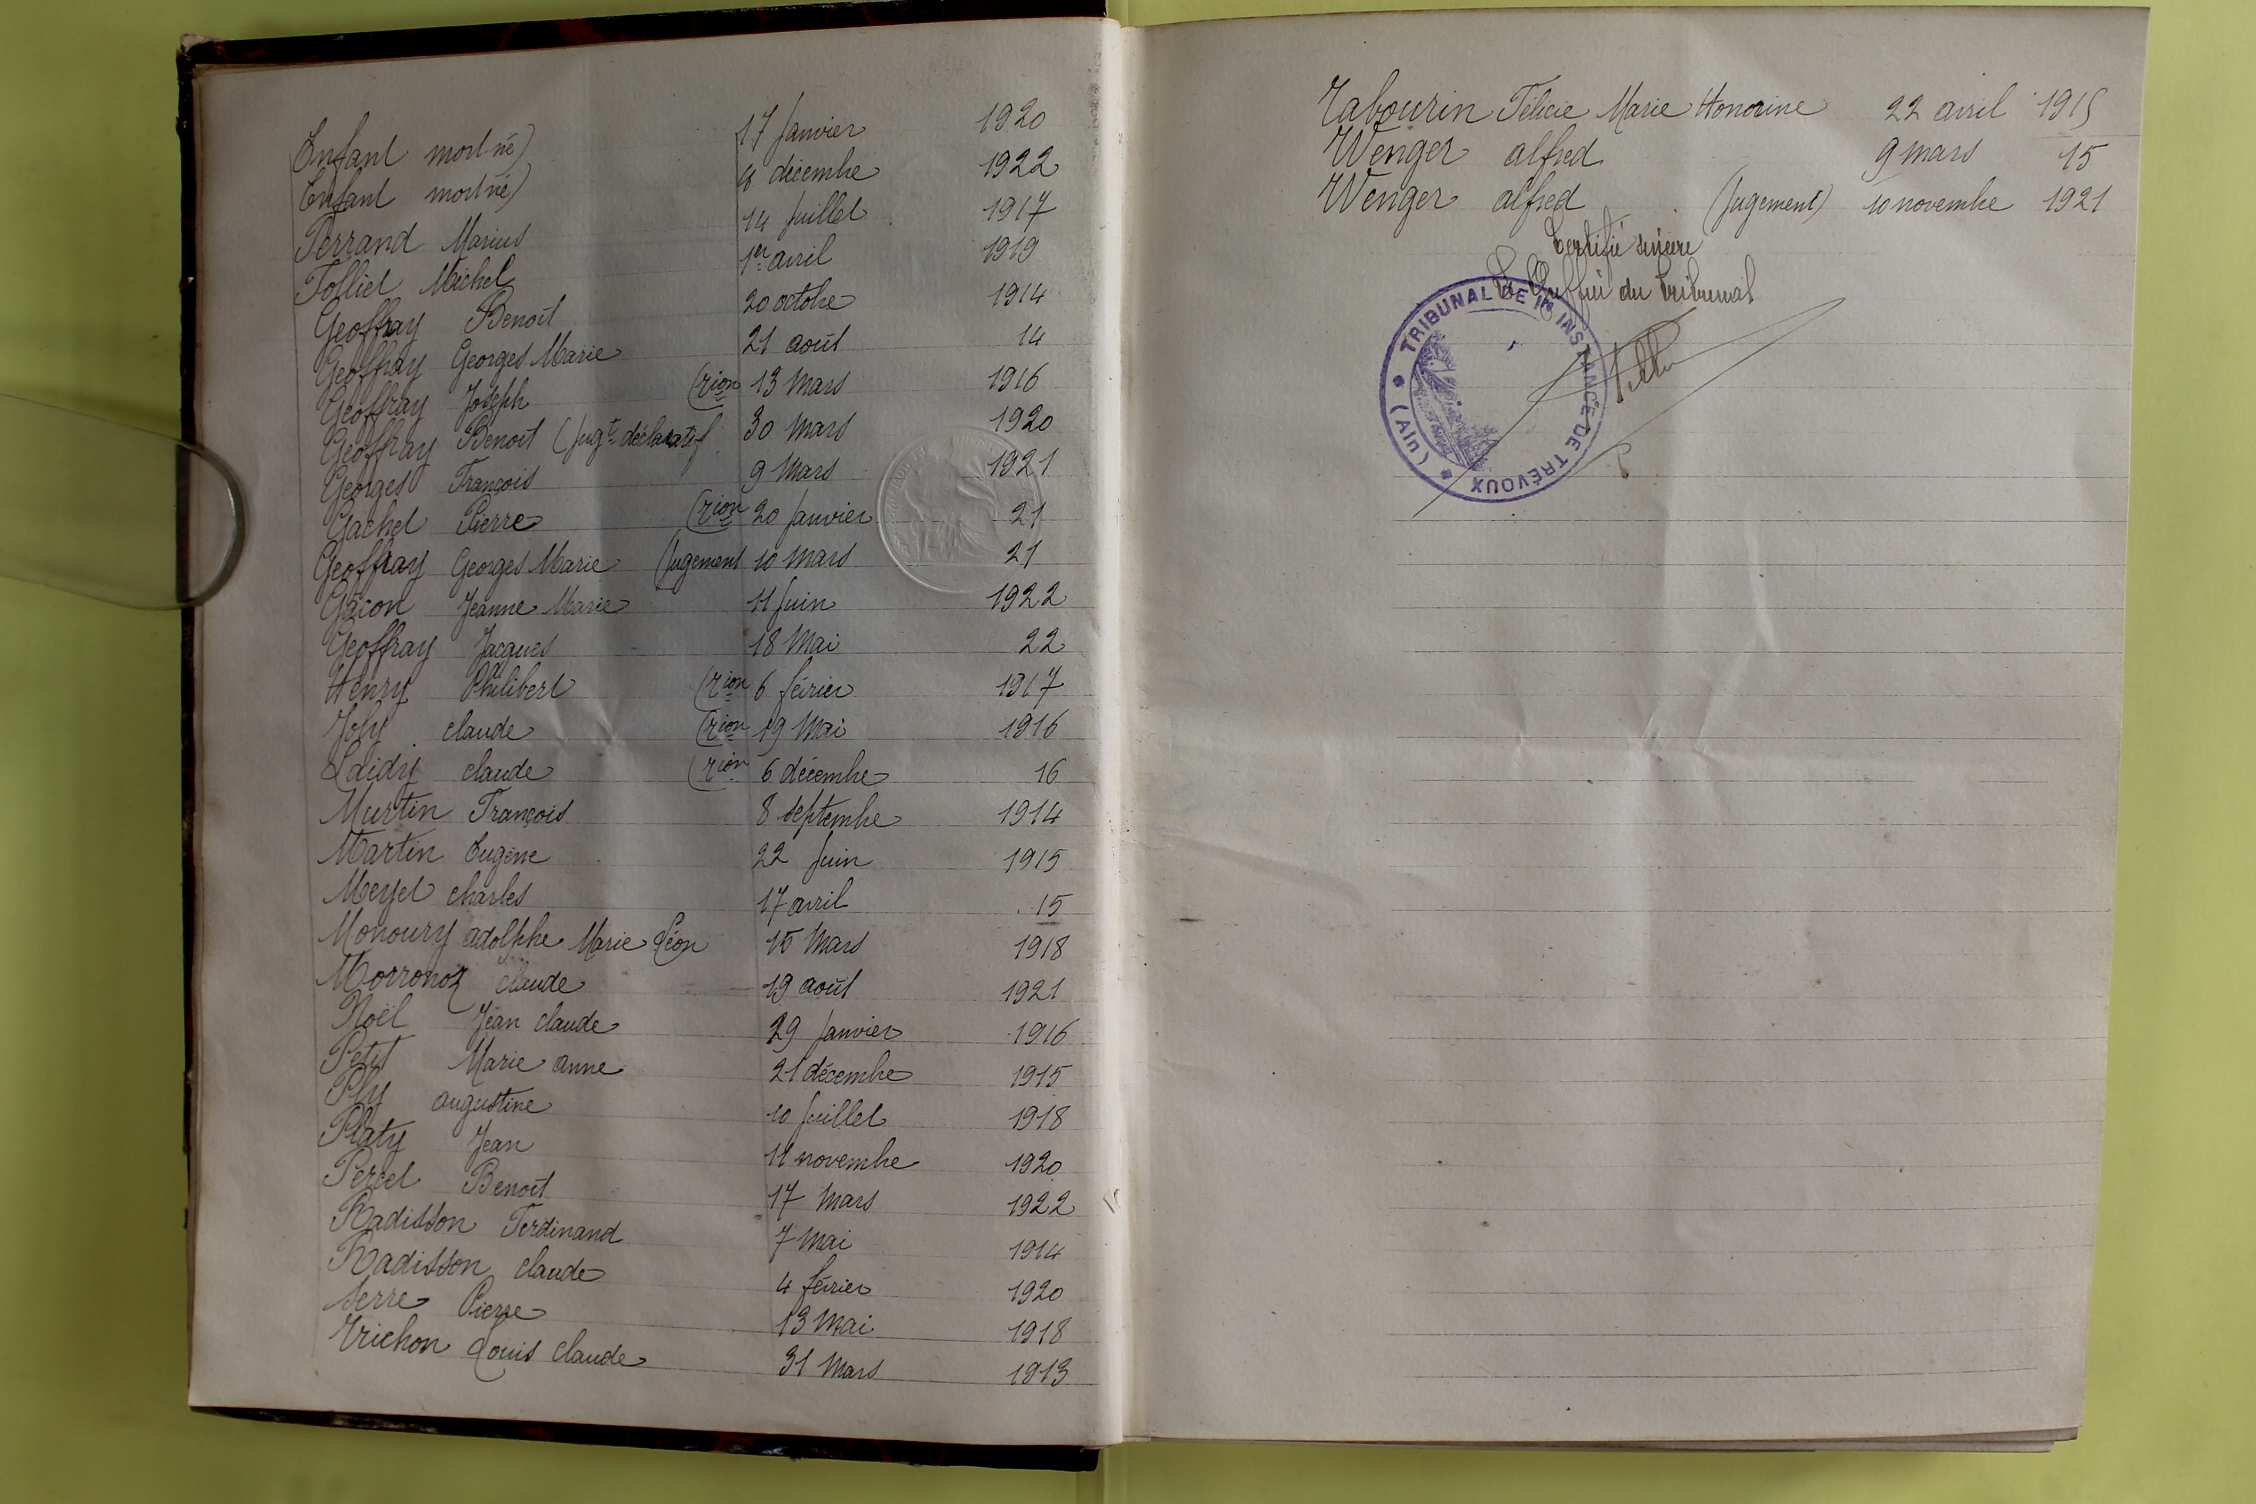 Enfant mort-né 17 Janvier 1920
Enfant mort-né 8 décembre 1922
Ferrand Marius 14 Juillet 1917
Folliet Michel 1er avril 1919
Geoffray Benoit 20 octobre 1914
Geoffray Georges Marie 21 août 14
Geoffray Joseph (rion 13 Mars 1916
Geoffray Benoit (Jugt déclaratif 30 Mars 1920
Georges François 9 Mars 1921
Gachet Pierre (rion 20 Janvier 21
Geoffray Georges Marie Jugement 10 Mars 21
Gacon Jeanne Marie 11 Juin 1922
Geoffray Jacques 18 Mai 22
Henry Philibert (rion 6 février 1917
Joly claude (rion 19 Mai 1916
Laidy claude (rion 6 décembre 16
Murtin François 8 septembre 1914
Martin Eugène 22 Juin 1915
Meyet charles 17 avril 15
Monoury adolphe Marie Léon 15 Mars 1918
Morronoz claude 19 août 1921
Noël Jean claude 29 Janvier 1916
Petit Marie anne 21 décembre 1915
Ply augustine 10 Juillet 1918
Platy Jean 11 novembre 1920
Percet Benoit 17 Mars 1922
Radisson Ferdinand 7 Mai 1914
Radisson claude 4 février 1920
Serre Pierre 13 Mai 1918
Trichon Louis Claude 31 Mars 1913
Tabourin Félicie Marie Honorine 22 avril 1915
Wenger alfred 9 mars 15
Wenger alfred (Jugement) 10 novembre 1921
Certifié sincère
Le Greffier du Tribunal
TRIBUNAL DE 1re INSTANCE DE TRÉVOUX (Ain)